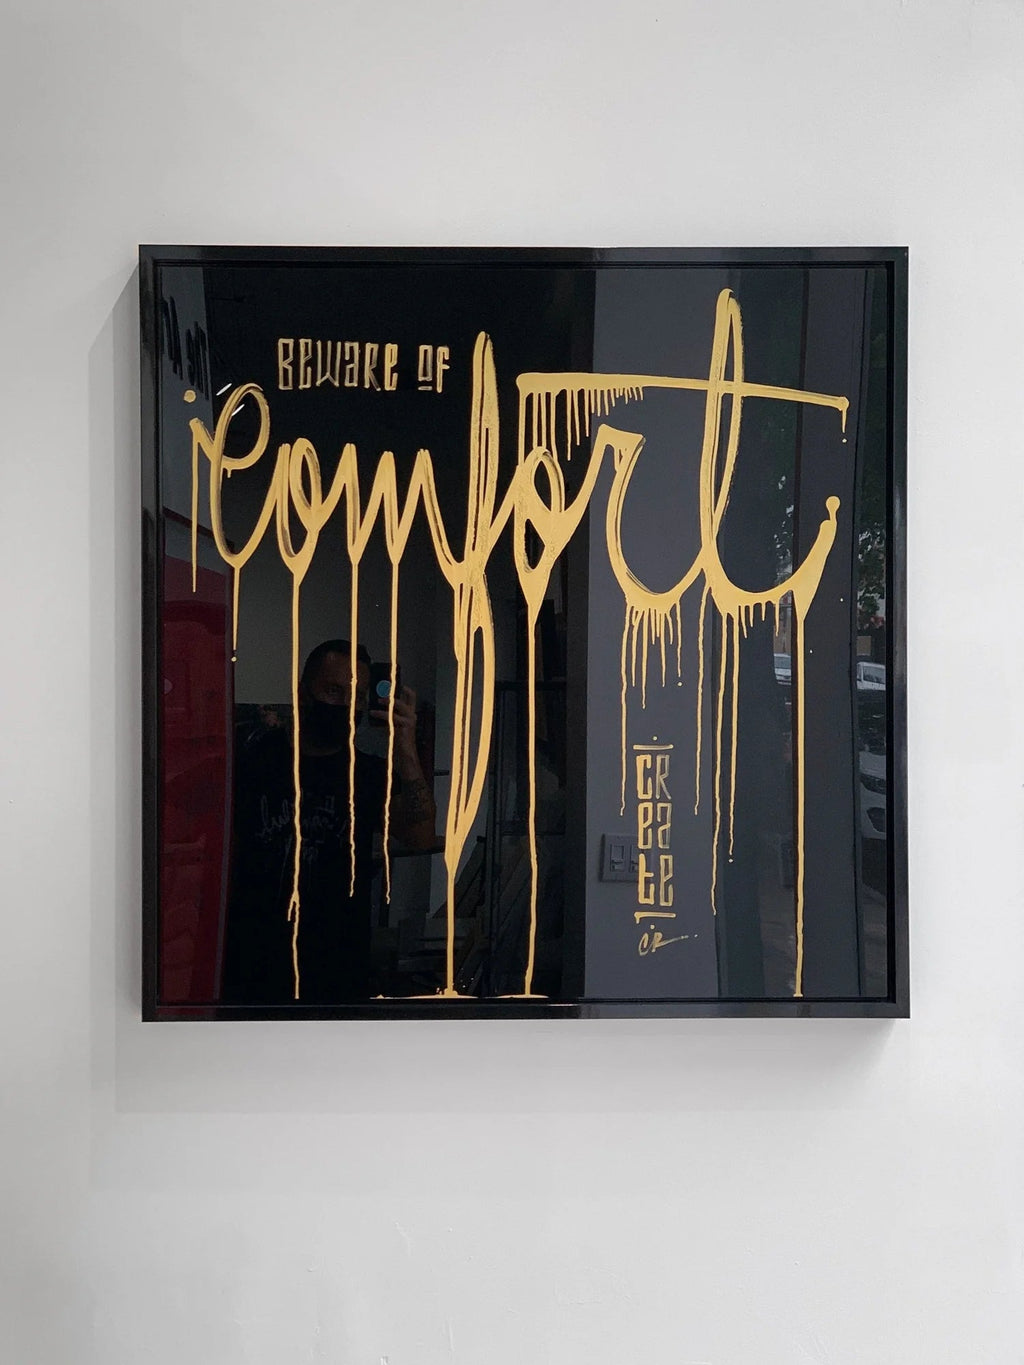 BEWARE OF
Comfort
CREATE
CR